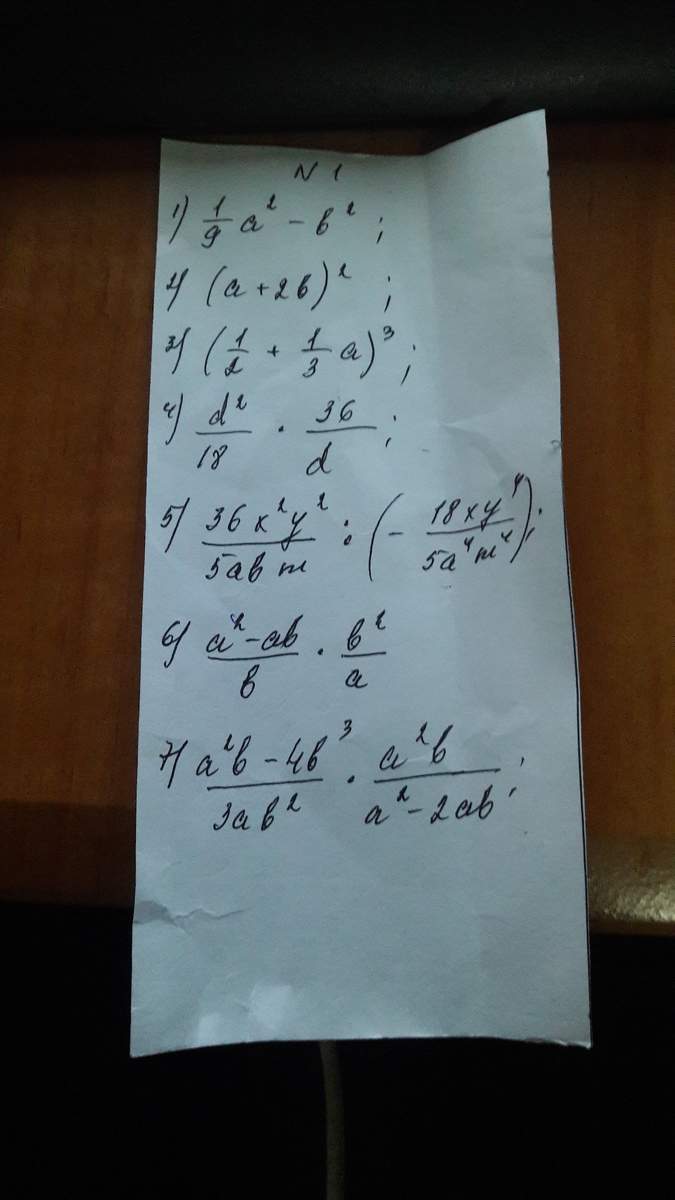 N 1
1) 1/9 a² - b²;
2) (a + 2b)²;
3) (1/2 + 1/3 a)³;
4) d²/18 · 36/d;
5) 36x²y²/5abm : (- 18xy⁴/5a⁴m⁴);
6) a²-ab/b · b²/a
7) a²b - 4b³/3ab² · a²b/a² - 2ab;